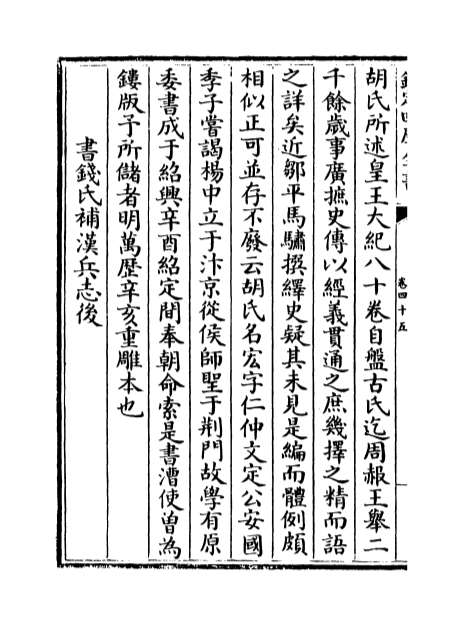 卷四十五
胡氏所述皇王大紀八十卷自盤古氏迄周赧王舉二
千餘歲事廣摭史傳以經義貫通之庶幾擇之精而語
之詳矣近鄒平馬驌撰繹史疑其未見是編而體例頗
相似正可並存不廢云胡氏名宏字仁仲文定公安國
季子嘗謁楊中立于汴京從侯師聖于荆門故學有原
委書成于紹興辛酉紹定間奉朝命索是書漕使曽為
鏤版予所儲者明萬歴辛亥重雕本也
書錢氏補漢兵志後